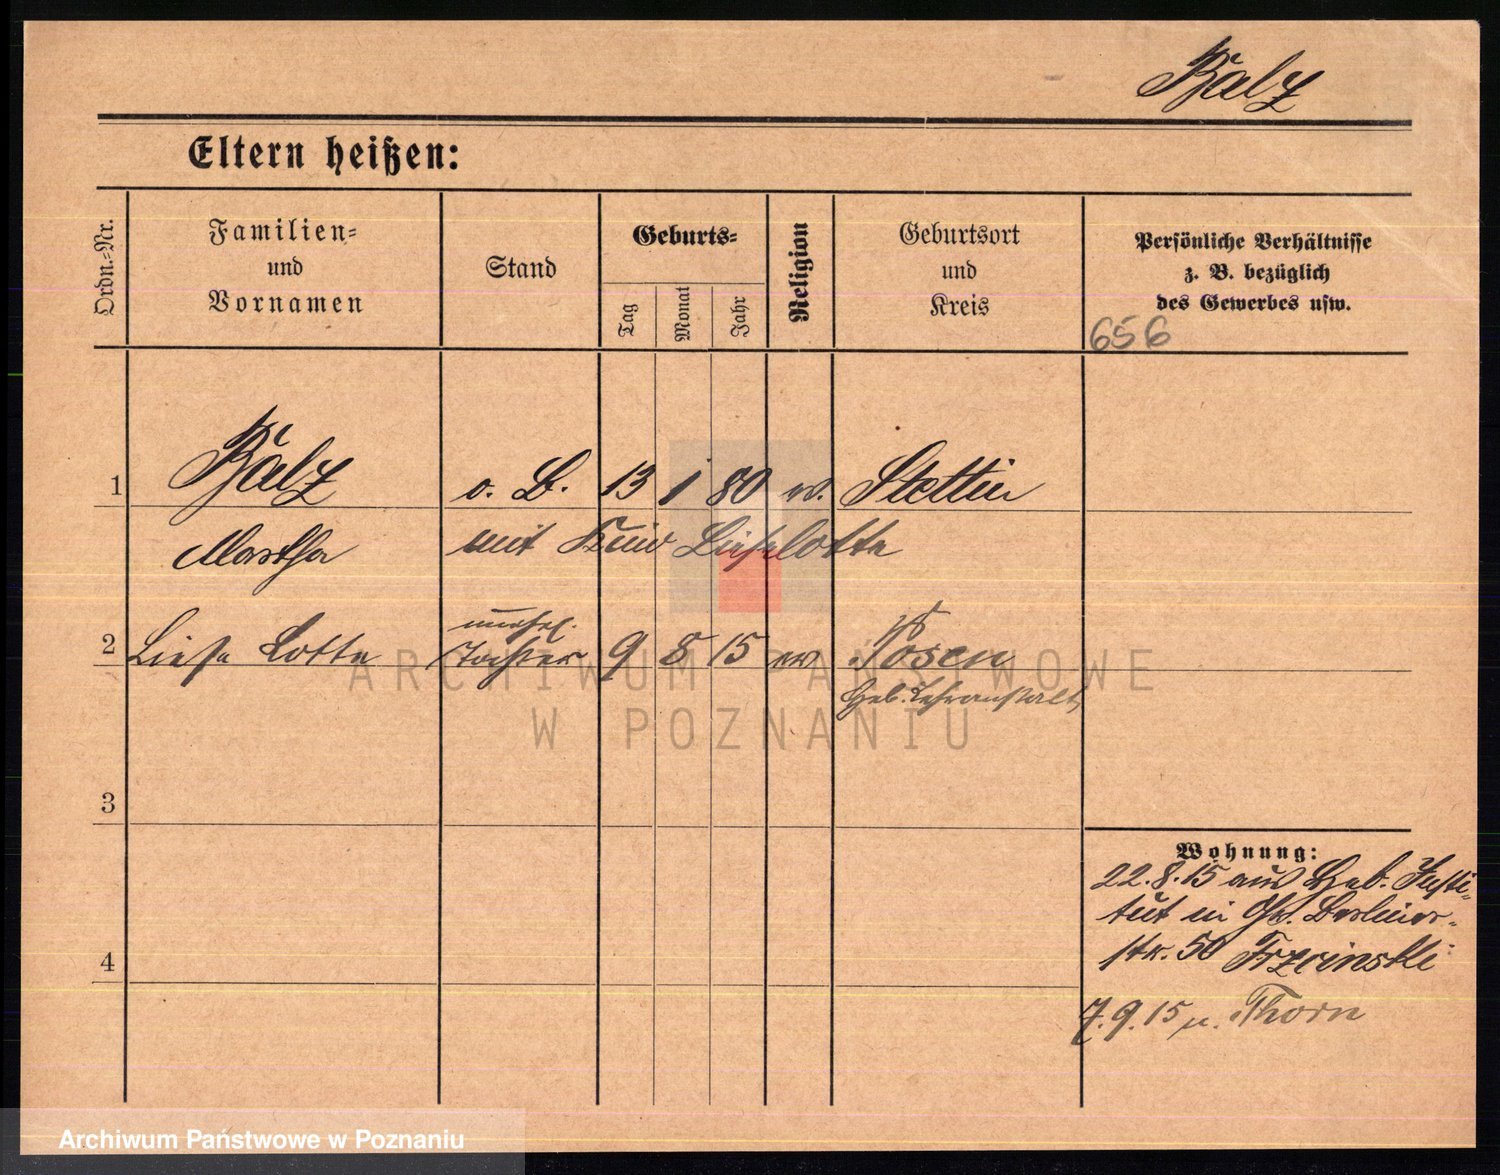 Bälz
Eltern heißen:
Ordn.-Nr.
Familien-
und
Vornamen
Stand
Geburts-
Tag
Monat
Jahr
Religion
Geburtsort
und
Kreis
Persönliche Verhältnisse
z. B. bezüglich
des Gewerbes usw.
656
1 Bälz o. B. 13 1 80 ev. Stettin
Martha mit Kind Lieselotte
unehel.
2 Liese Lotte Tochter 9 8 15 ev. Posen
Heb. Lehranstalt
3
4
Wohnung:
22.8.15 aus Heb. Insti-
tut in Gr. Berliner-
str. 50 Trzcinski
7.9.15 n. Thorn
ARCHIWUM PAŃSTWOWE
W POZNANIU
Archiwum Państwowe w Poznaniu